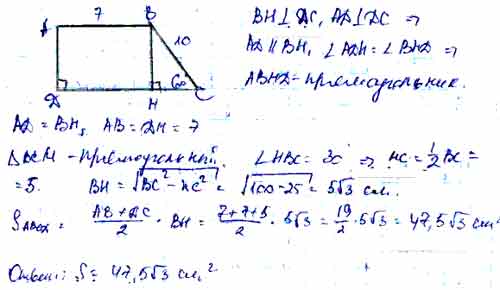 7
A B
10
60°
D H C
BH⊥DC, AD⊥DC ⇒
AD∥BH, ∠ADH = ∠BHD ⇒
ABHD - прямоугольник.
AD = BH, AB = DH = 7
ΔBCH - прямоугольный. ∠HBC = 30 ⇒ HC = 1/2 BC =
= 5. BH = √(BC² - HC²) = √(100-25) = 5√3 см.
S ABCD = (AB + DC)/2 · BH = (7+7+5)/2 · 5√3 = 19/2 · 5√3 = 47,5√3 см²
Ответ: S = 47,5√3 см²